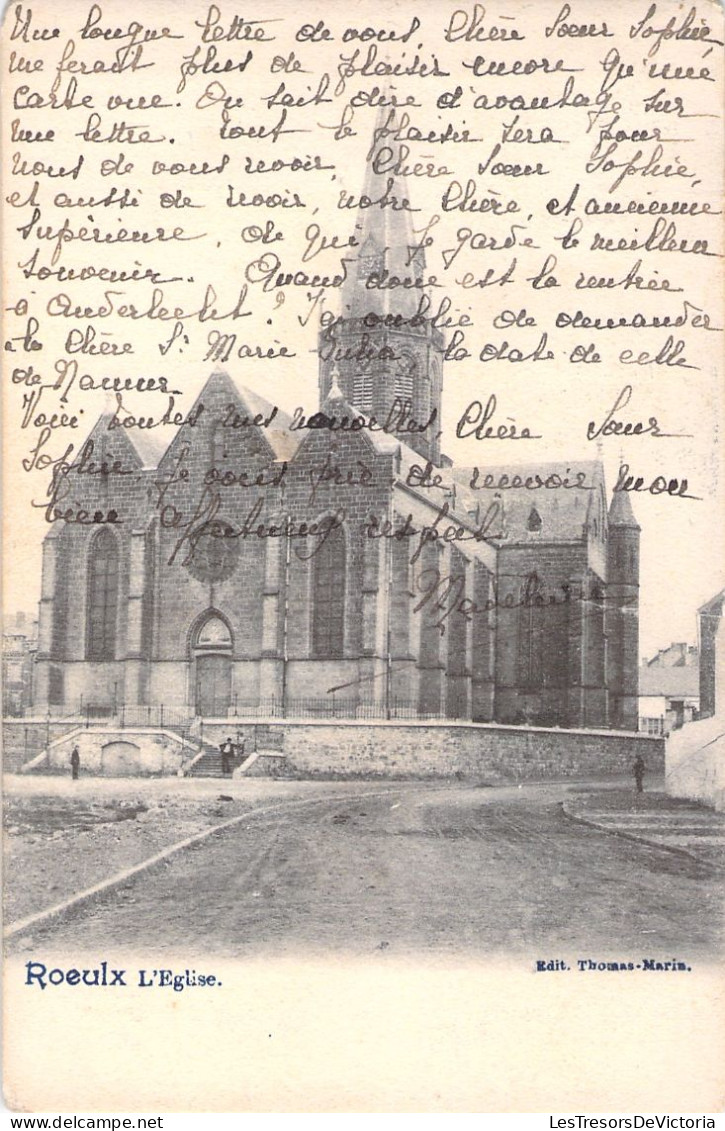 Une longue lettre de vous, Chère Sœur Sophie,
me ferait plus de plaisir encore qu'une
carte vue. On sait dire d'avantage sur
une lettre. Tout le plaisir sera pour
nous de vous revoir, Chère Sœur Sophie,
et aussi de revoir, notre Chère, et ancienne
Supérieure, de qui je garde le meilleur
Souvenir. Quand donc est la rentrée
à Anderlecht? J'ai oublié de demander
à la Chère Sr Marie Julia, la date de celle
de Namur
Voici toutes mes nouvelles, Chère Sœur
Sophie, Je vous prie de recevoir mon
bien affectueux respect
Madeleine
Roeulx L'Eglise.
Edit. Thomas-Marin.
LesTresorsDeVictoria